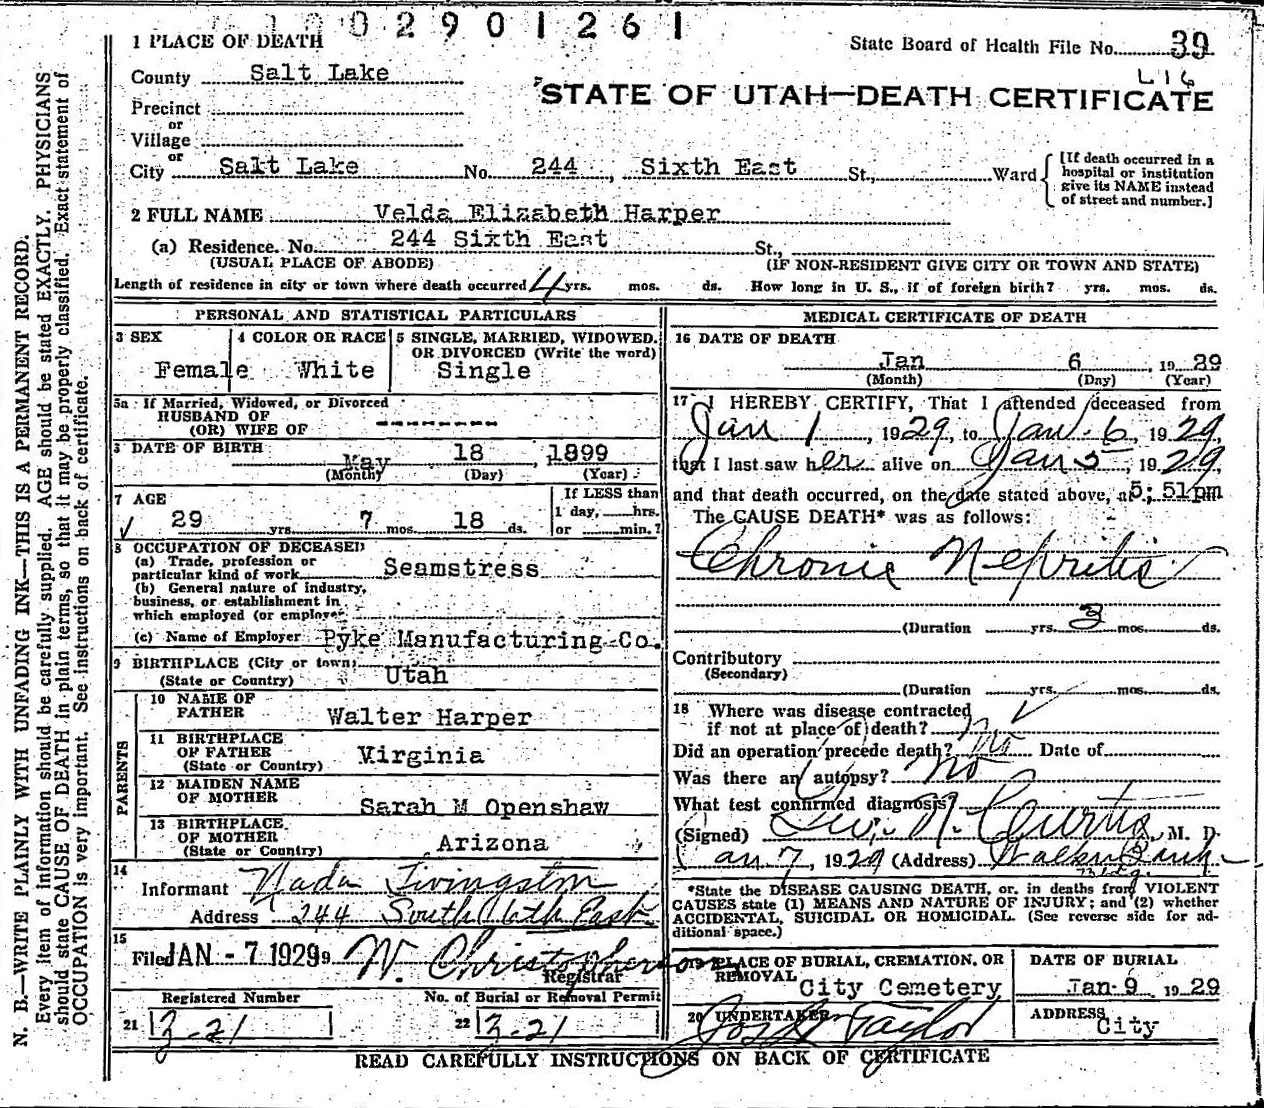 1002901261
1 PLACE OF DEATH
State Board of Health File No. 39
County Salt Lake
L16
STATE OF UTAH—DEATH CERTIFICATE
Precinct
or
Village
or
City Salt Lake No. 244, Sixth East St., Ward {[If death occurred in a
hospital or institution
give its NAME instead
of street and number.]
2 FULL NAME Velda Elizabeth Harper
(a) Residence. No. 244 Sixth East St.,
(USUAL PLACE OF ABODE) (IF NON-RESIDENT GIVE CITY OR TOWN AND STATE)
Length of residence in city or town where death occurred 4 yrs. mos. ds. How long in U. S., if of foreign birth? yrs. mos. ds.
PERSONAL AND STATISTICAL PARTICULARS
3 SEX
Female
4 COLOR OR RACE
White
5 SINGLE, MARRIED, WIDOWED,
OR DIVORCED (Write the word)
Single
5a If Married, Widowed, or Divorced
HUSBAND OF
(OR) WIFE OF ---------
DATE OF BIRTH
May 18, 1899
(Month) (Day) (Year)
7 AGE
29 yrs. 7 mos. 18 ds.
If LESS than
1 day, hrs.
or min.?
8 OCCUPATION OF DECEASED
(a) Trade, profession or
particular kind of work Seamstress
(b) General nature of industry,
business, or establishment in
which employed (or employer
(c) Name of Employer Pyke Manufacturing Co.
9 BIRTHPLACE (City or town)
(State or Country) Utah
PARENTS
10 NAME OF
FATHER Walter Harper
11 BIRTHPLACE
OF FATHER
(State or Country) Virginia
12 MAIDEN NAME
OF MOTHER Sarah M Openshaw
13 BIRTHPLACE
OF MOTHER
(State or Country) Arizona
14
Informant Nada Livingston
Address 244 South 6th East
15
Filed JAN - 7 1929 9 W. Christopherson
Registrar
Registered Number
21 3-21
No. of Burial or Removal Permit
22 3-21
MEDICAL CERTIFICATE OF DEATH
16 DATE OF DEATH
Jan 6, 19 29
(Month) (Day) (Year)
17 I HEREBY CERTIFY, That I attended deceased from
Jan 1, 1929, to Jan. 6, 1929,
that I last saw her alive on Jan 5, 1929,
and that death occurred, on the date stated above, at 5:51pm
The CAUSE DEATH* was as follows:
Chronic Nepritis
(Duration yrs. 3 mos. ds.
Contributory
(Secondary)
(Duration yrs. mos. ds.
18 Where was disease contracted
if not at place of death?
Did an operation precede death? no Date of
Was there an autopsy? no
What test confirmed diagnosis?
(Signed) Geo. N. Curtis, M. D.
Jan 7, 1929 (Address) Walker Bank
Bldg.
*State the DISEASE CAUSING DEATH, or, in deaths from VIOLENT
CAUSES state (1) MEANS AND NATURE OF INJURY; and (2) whether
ACCIDENTAL, SUICIDAL OR HOMICIDAL. (See reverse side for ad-
ditional space.)
19 PLACE OF BURIAL, CREMATION, OR
REMOVAL City Cemetery
DATE OF BURIAL
Jan 9 19 29
20 UNDERTAKER Taylor
ADDRESS
City
READ CAREFULLY INSTRUCTIONS ON BACK OF CERTIFICATE
N. B.—WRITE PLAINLY WITH UNFADING INK—THIS IS A PERMANENT RECORD.
Every item of information should be carefully supplied. AGE should be stated EXACTLY. PHYSICIANS
should state CAUSE OF DEATH in plain terms, so that it may be properly classified. Exact statement of
OCCUPATION is very important. See instructions on back of certificate.